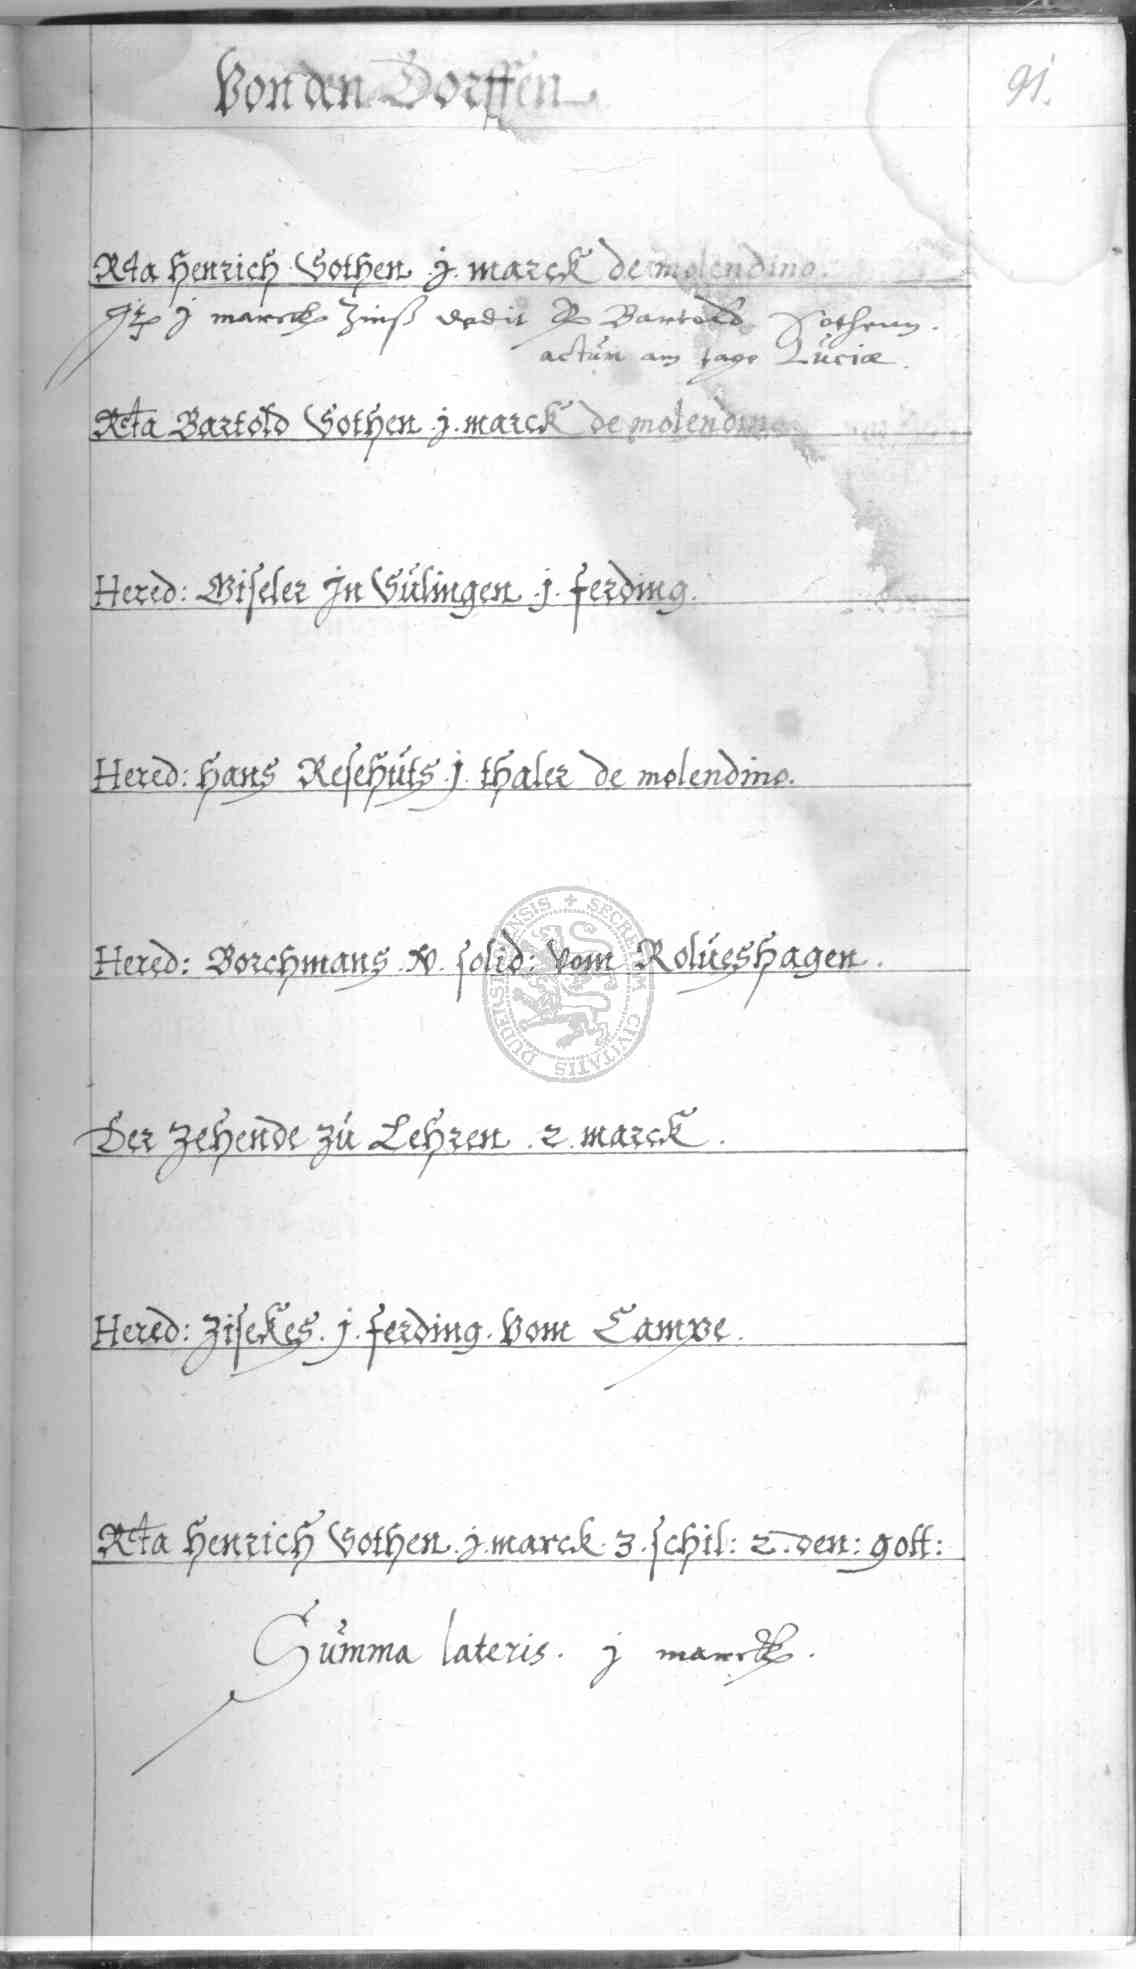 Von den Dorffen
91.
Rcta Henrich Sothen .j. marck de molendino.
j marck Zinß dedit Bartold Sothenn.
actum am tage Luciæ.
Rcta Bartold Sothen .j. marck de molendino
Hered: Giseler Jn Sülingen .j. ferding.
Hered: Hans Resehuts .j. thaler de molendino.
Hered: Borchmans .v. solid: vom Rolueshagen.
Der Zehende zu Lehren .2. marck.
Hered: Zisekes .j. ferding. vom Campe.
Rcta Henrich Sothen .j. marck. 3. schil: 2. den: gott:
Summa lateris. j marck.
SECRETUM CIVITATIS DUDERSTADENSIS